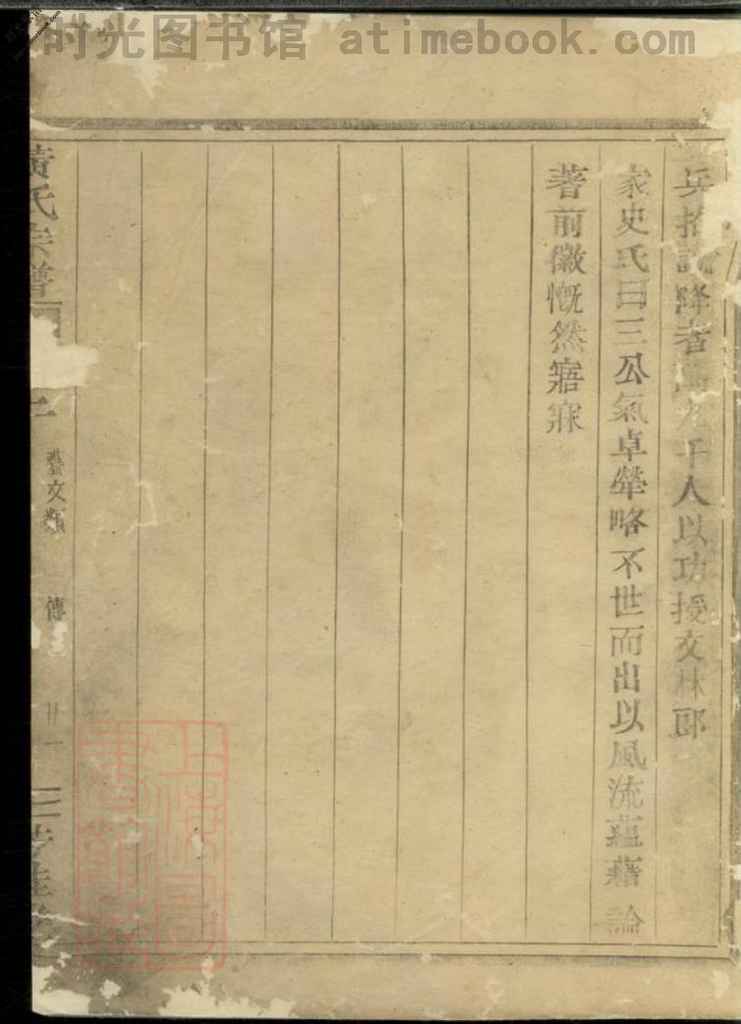 时光图书馆 atimebook.com
兵招討降者萬九千人以功授文林郎
家史氏曰三公氣卓犖略不世而出以風流蘊藉論
著前徽慨然寤寐
黃氏宗譜
藝文類 傳 廿一
上海圖書館藏